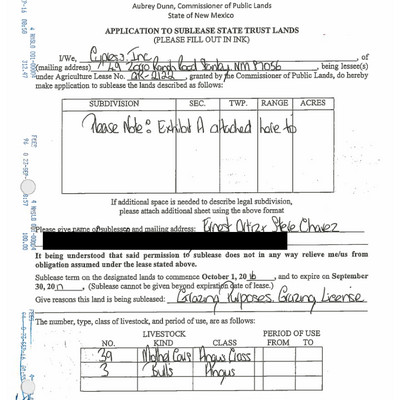 Aubrey Dunn, Commissioner of Public Lands
State of New Mexico
APPLICATION TO SUBLEASE STATE TRUST LANDS
(PLEASE FILL OUT IN INK)
I/We, Cypress, Inc, of
(mailing address) 49 Zorro Ranch Road Stanley NM 87056, being lessee(s)
under Agriculture Lease No. GR-2122, granted by the Commissioner of Public Lands, do hereby
make application to sublease the lands described as follows:
SUBDIVISION SEC. TWP. RANGE ACRES
Please Note: Exhibit A attached here to
If additional space is needed to describe legal subdivision,
please attach additional sheet using the above format
Please give name of sublessee and mailing address: Ernest Ortiz & Steve Chavez
It being understood that said permission to sublease does not in any way relieve me/us from
obligation assumed under the lease stated above.
Sublease term on the designated lands to commence October 1, 2016, and to expire on September
30, 2017. (Sublease cannot be given beyond expiration date of lease.)
Give reasons this land is being subleased: Grazing Purposes. Grazing License
The number, type, class of livestock, and period of use, are as follows:
LIVESTOCK PERIOD OF USE
NO. KIND CLASS FROM TO
39 Mother Cows Angus Cross
3 Bulls Angus